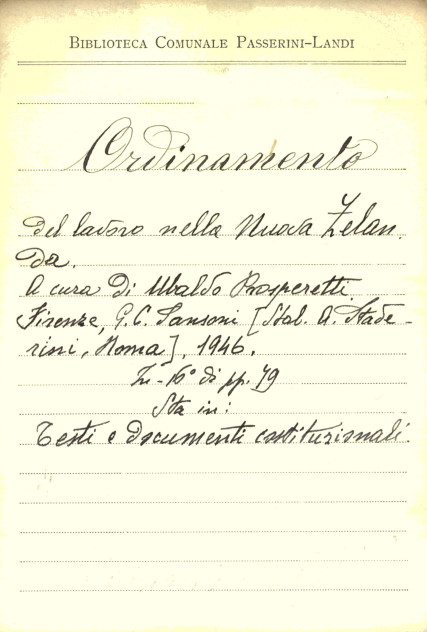 BIBLIOTECA COMUNALE PASSERINI-LANDI
Ordinamento
del lavoro nella Nuova Zelan.
da.
A cura di Ubaldo Prosperetti.
Firenze, G.C. Sansoni [Stab. A. Stade-
rini, Roma], 1946.
In-16° di pp. 79
Sta in:
Testi e documenti costituzionali.